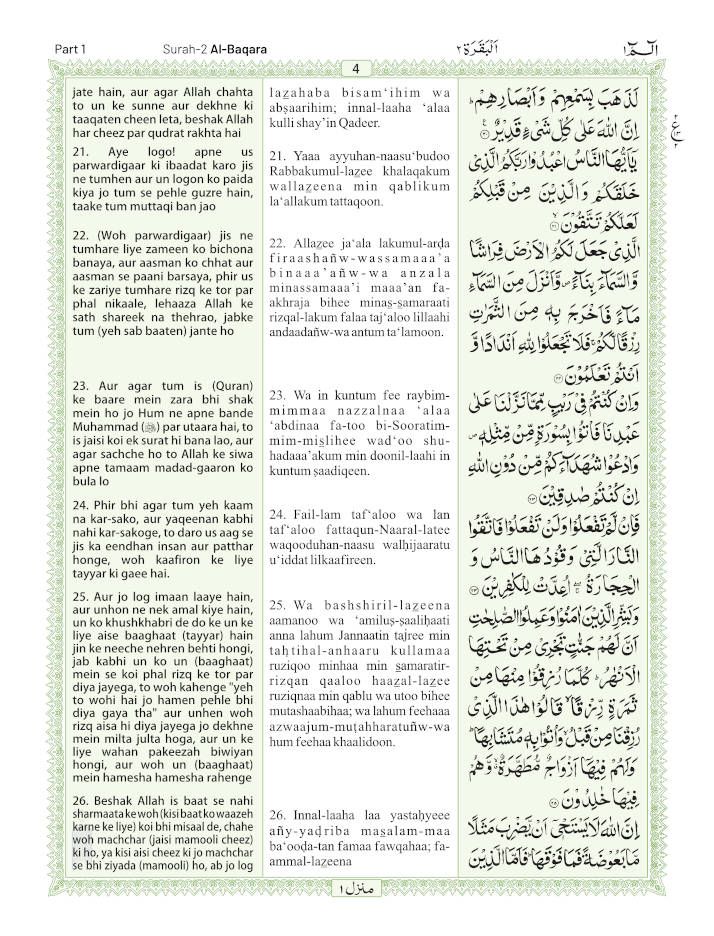 Part 1
Surah-2 Al-Baqara
اَلْبَقَرَة ٢
الٓمّٓ ١
4
jate hain, aur agar Allah chahta
to un ke sunne aur dekhne ki
taaqaten cheen leta, beshak Allah
har cheez par qudrat rakhta hai
21. Aye logo! apne us
parwardigaar ki ibaadat karo jis
ne tumhen aur un logon ko paida
kiya jo tum se pehle guzre hain,
taake tum muttaqi ban jao
22. (Woh parwardigaar) jis ne
tumhare liye zameen ko bichona
banaya, aur aasman ko chhat aur
aasman se paani barsaya, phir us
ke zariye tumhare rizq ke tor par
phal nikaale, lehaaza Allah ke
sath shareek na thehrao, jabke
tum (yeh sab baaten) jante ho
23. Aur agar tum is (Quran)
ke baare mein zara bhi shak
mein ho jo Hum ne apne bande
Muhammad (ﷺ) par utaara hai, to
is jaisi koi ek surat hi bana lao, aur
agar sachche ho to Allah ke siwa
apne tamaam madad-gaaron ko
bula lo
24. Phir bhi agar tum yeh kaam
na kar-sako, aur yaqeenan kabhi
nahi kar-sakoge, to daro us aag se
jis ka eendhan insan aur patthar
honge, woh kaafiron ke liye
tayyar ki gaee hai.
25. Aur jo log imaan laaye hain,
aur unhon ne nek amal kiye hain,
un ko khushkhabri de do ke un ke
liye aise baaghaat (tayyar) hain
jin ke neeche nehren behti hongi,
jab kabhi un ko un (baaghaat)
mein se koi phal rizq ke tor par
diya jayega, to woh kahenge "yeh
to wohi hai jo hamen pehle bhi
diya gaya tha" aur unhen woh
rizq aisa hi diya jayega jo dekhne
mein milta julta hoga, aur un ke
liye wahan pakeezah biwiyan
hongi, aur woh un (baaghaat)
mein hamesha hamesha rahenge
26. Beshak Allah is baat se nahi
sharmaata ke woh (kisi baat ko waazeh
karne ke liye) koi bhi misaal de, chahe
woh machchar (jaisi mamooli cheez)
ki ho, ya kisi aisi cheez ki jo machchar
se bhi ziyada (mamooli) ho, ab jo log
lazahaba bisam‘ihim wa
abṣaarihim; innal-laaha ‘alaa
kulli shay’in Qadeer.
21. Yaaa ayyuhan-naasu‘budoo
Rabbakumul-lazee khalaqakum
wallazeena min qablikum
la‘allakum tattaqoon.
22. Allazee ja‘ala lakumul-arḍa
firaashañw-wassamaaa’a
binaaa’añw-wa anzala
minassamaaa’i maaa’an fa-
akhraja bihee minaṣ-ṣamaraati
rizqal-lakum falaa taj‘aloo lillaahi
andaadañw-wa antum ta‘lamoon.
23. Wa in kuntum fee raybim-
mimmaa nazzalnaa ‘alaa
‘abdinaa fa-too bi-Sooratim-
mim-miṣlihee wad‘oo shu-
hadaaa’akum min doonil-laahi in
kuntum ṣaadiqeen.
24. Fail-lam taf‘aloo wa lan
taf‘aloo fattaqun-Naaral-latee
waqooduhan-naasu walḥijaaratu
u‘iddat lilkaafireen.
25. Wa bashshiril-lazeena
aamanoo wa ‘amiluṣ-ṣaaliḥaati
anna lahum Jannaatin tajree min
taḥtihal-anhaaru kullamaa
ruziqoo minhaa min ṣamaratir-
rizqan qaaloo haazal-lazee
ruziqnaa min qablu wa utoo bihee
mutashaabihaa; wa lahum feehaaa
azwaajum-muṭahharatuñw-wa
hum feehaa khaalidoon.
26. Innal-laaha laa yastaḥyeee
añy-yaḍriba maṣalam-maa
ba‘ooḍa-tan famaa fawqahaa; fa-
ammal-lazeena
لَذَهَبَ بِسَمْعِهِمْ وَاَبْصَارِهِمْ ؕ
اِنَّ اللّٰهَ عَلٰى كُلِّ شَیْءٍ قَدِیْرٌ ۟
یٰۤاَیُّهَا النَّاسُ اعْبُدُوْا رَبَّكُمُ الَّذِیْ
خَلَقَكُمْ وَالَّذِیْنَ مِنْ قَبْلِكُمْ
لَعَلَّكُمْ تَتَّقُوْنَ ۟ۙ
الَّذِیْ جَعَلَ لَكُمُ الْاَرْضَ فِرَاشًا
وَّالسَّمَآءَ بِنَآءً ۪ وَّاَنْزَلَ مِنَ السَّمَآءِ
مَآءً فَاَخْرَجَ بِهٖ مِنَ الثَّمَرٰتِ
رِزْقًا لَّكُمْ ۚ فَلَا تَجْعَلُوْا لِلّٰهِ اَنْدَادًا وَّ
اَنْتُمْ تَعْلَمُوْنَ ۟
وَاِنْ كُنْتُمْ فِیْ رَیْبٍ مِّمَّا نَزَّلْنَا عَلٰى
عَبْدِنَا فَاْتُوْا بِسُوْرَةٍ مِّنْ مِّثْلِهٖ ۪
وَادْعُوْا شُهَدَآءَكُمْ مِّنْ دُوْنِ اللّٰهِ
اِنْ كُنْتُمْ صٰدِقِیْنَ ۟
فَاِنْ لَّمْ تَفْعَلُوْا وَلَنْ تَفْعَلُوْا فَاتَّقُوا
النَّارَ الَّتِیْ وَقُوْدُهَا النَّاسُ وَ
الْحِجَارَةُ ۖۚ اُعِدَّتْ لِلْكٰفِرِیْنَ ۟
وَبَشِّرِ الَّذِیْنَ اٰمَنُوْا وَعَمِلُوا الصّٰلِحٰتِ
اَنَّ لَهُمْ جَنّٰتٍ تَجْرِیْ مِنْ تَحْتِهَا
الْاَنْهٰرُ ؕ كُلَّمَا رُزِقُوْا مِنْهَا مِنْ
ثَمَرَةٍ رِّزْقًا ۙ قَالُوْا هٰذَا الَّذِیْ
رُزِقْنَا مِنْ قَبْلُ ۙ وَاُتُوْا بِهٖ مُتَشَابِهًا ؕ
وَلَهُمْ فِیْهَاۤ اَزْوَاجٌ مُّطَهَّرَةٌ ۙ وَّهُمْ
فِیْهَا خٰلِدُوْنَ ۟
اِنَّ اللّٰهَ لَا یَسْتَحْیٖۤ اَنْ یَّضْرِبَ مَثَلًا
مَّا بَعُوْضَةً فَمَا فَوْقَهَا ؕ فَاَمَّا الَّذِیْنَ
منزل ١